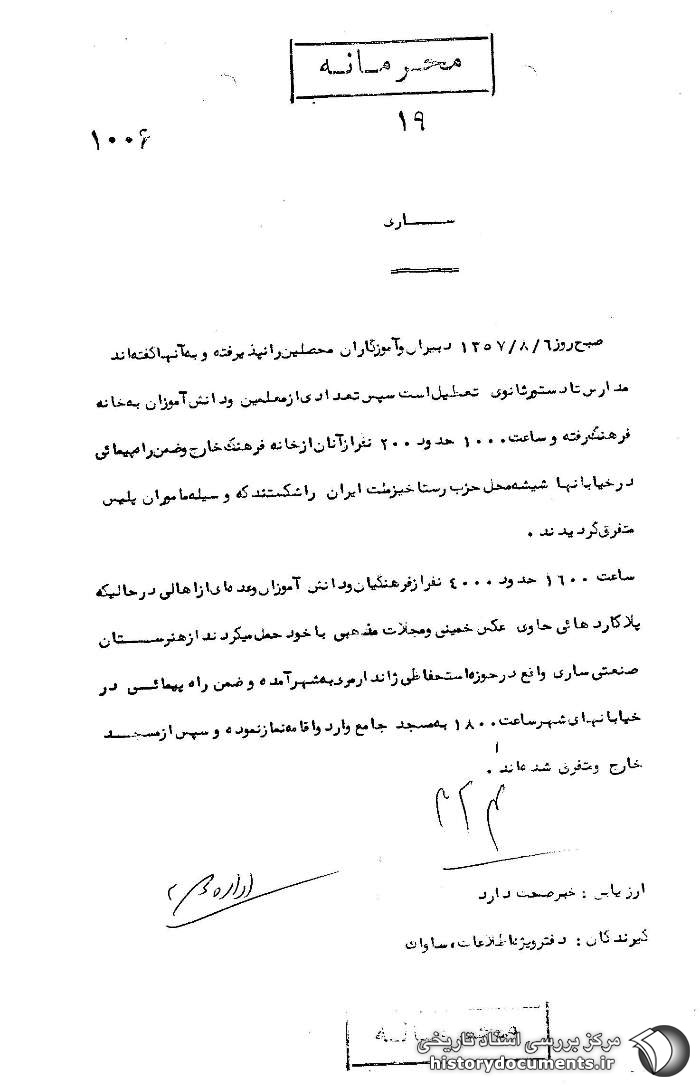 محرمانه
۱۹
۱۰۰۶
ساری
صبح روز ۱۳۵۷/۸/۶ دبیران و آموزگاران محصلین را نپذیرفته و به آنها گفته‌اند
مدارس تا دستور ثانوی تعطیل است سپس تعدادی از معلمین و دانش آموزان به خانه
فرهنگ رفته و ساعت ۱۰۰۰ حدود ۲۰۰ نفر از آنان از خانه فرهنگ خارج و ضمن راهپیمائی
در خیابانها شیشه محل حزب رستاخیز ملت ایران را شکستند که وسیله مامورین پلیس
متفرق گردیدند .
ساعت ۱۶۰۰ حدود ۴۰۰۰ نفر از فرهنگیان و دانش آموزان و عده‌ای از اهالی در حالیکه
پلاکارد هائی حاوی عکس خمینی و مجلات مذهبی با خود حمل میکردند از هنرستان
صنعتی ساری واقع در حوزه استحفاظی ژاندارمری به شهر آمده و ضمن راه پیمائی در
خیابانهای شهر ساعت ۱۸۰۰ به مسجد جامع وارد و اقامه نماز نموده و سپس از مسجد
خارج و متفرق شده‌اند .
۳۲۴
اداره
ارزیابی : خبر صحت دارد
گیرندگان : دفتر ویژه اطلاعات، ساواک
محرمانه
مرکز بررسی اسناد تاریخی
historydocuments.ir